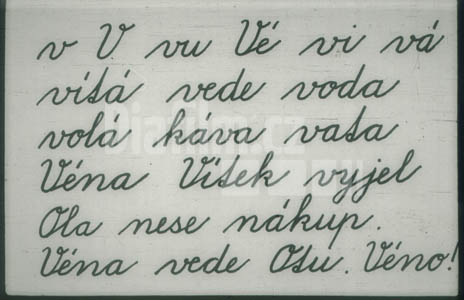 v V vu Vé vi vá
vítá vede voda
volá káva vata
Véna Vítek vyjel
Ola nese nákup.
Véna vede Otu. Véno!
diafilm.cz